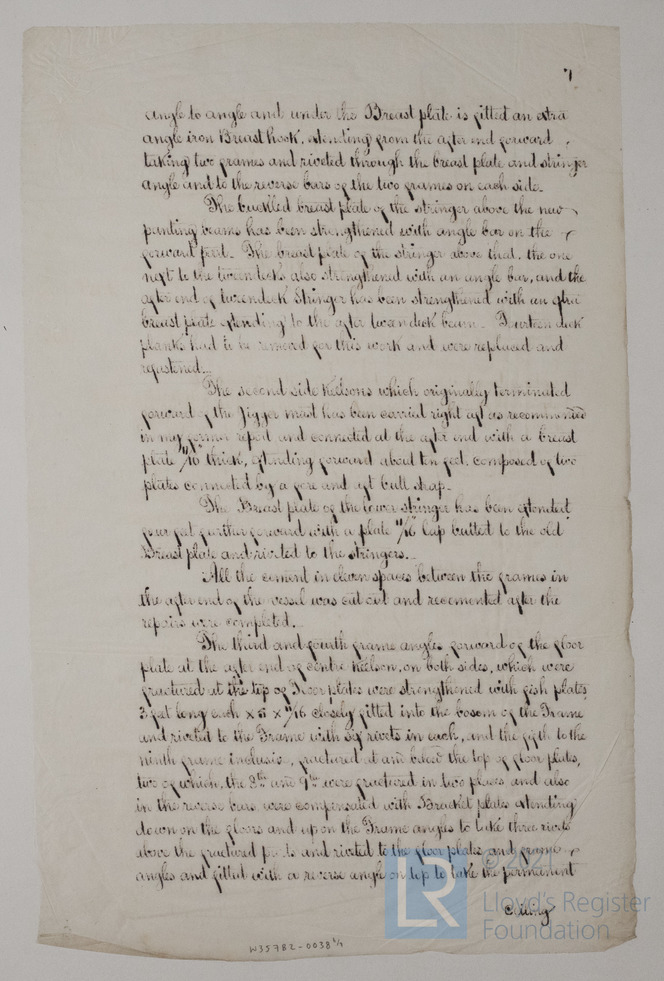 7
angle to angle and under the Breast plate is fitted an extra
angle iron Breast hook, extending from the after end forward
taking two frames and riveted through the breast plate and stringer
angle and to the reverse bars of the two frames on each side.
The buckled breast plate of the stringer above the new
panting beams has been strengthened with angle bar on the
forward part. The breast plate of the stringer above that, the one
next to the tween decks also strengthened with an angle bar, and the
after end of tweendeck Stringer has been strengthened with an extra
breast plate extending to the after tweendeck beam. Fourteen deck
planks had to be removed for this work and were replaced and
refastened.
The second side Keelsons which originally terminated
forward of the Jigger mast has been carried right aft as recommended
in my former report and connected at the after end with a breast
plate 11/16 thick, extending forward about ten feet, composed of two
plates connected by a fore and aft butt strap.
The Breast plate of the lower stringer has been extended
four feet further forward with a plate 11/16 lap butted to the old
Breast plate and riveted to the stringers.
All the cement in eleven spaces between the frames in
the after end of the vessel was cut out and recemented after the
repairs were completed.
The third and fourth frame angles forward of the floor
plate at the after end of centre keelson, on both sides, which were
fractured at the top of Floor plates were strengthened with fish plates
3 feet long each x 5 x 11/16 closely fitted into the bosom of the Frame
and riveted to the Frame with six rivets in each, and the fifth to the
ninth frame inclusive, fractured at and below the top of floor plates,
two of which, the 8th and 9th were fractured in two places and also
in the reverse bars were compensated with Bracket plates extending
down on the floors and up on the Frame angles to take three rivets
above the fractured parts and riveted to the floor plates and frame
angles and fitted with a reverse angle on top to take the permanent
ceiling
W35782-0038 1/4
LR
© 2021
Lloyd's Register
Foundation